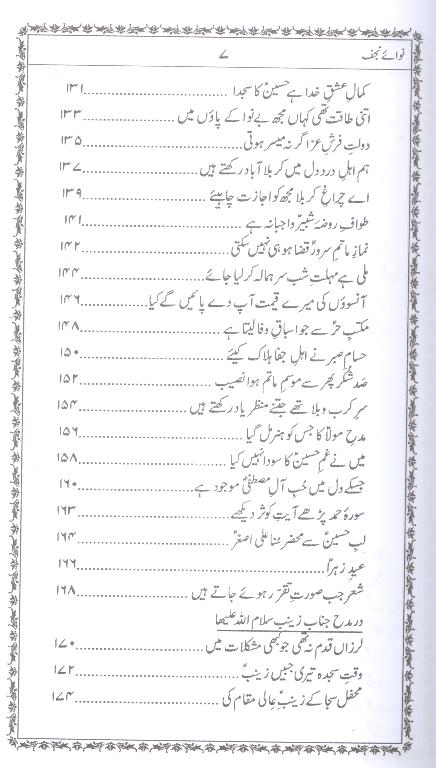 نوائے نجف ۷
کمالِ عشقِ خدا ہے حسینؑ کا سجدا ۱۳۱
اتنی طاقت تھی کہاں مجھ بے نوا کے پاؤں میں ۱۳۳
دولتِ فرشِ عزا گر نہ میسر ہوتی ۱۳۵
ہم اہلِ درد دل میں کربلا آباد رکھتے ہیں ۱۳۷
اے چراغِ کربلا مجھ کو اجازت چاہیئے ۱۳۹
طوافِ روضۂ شبیرؑ واجبانہ ہے ۱۴۱
نمازِ ماتمِ سرورؑ قضا ہو ہی نہیں سکتی ۱۴۲
ملی ہے مہلتِ شب سر ہمالہ کر لیا جائے ۱۴۴
آنسوؤں کی میرے قیمت آپ دے پائیں گے کیا ۱۴۶
مکتبِ حرؑ سے جو اسباقِ وفا لیتا ہے ۱۴۸
حسامِ صبر نے اہلِ جفا ہلاک کیئے ۱۵۰
صد شکر پھر سے موسمِ ماتم ہوا نصیب ۱۵۲
سرِ کرب و بلا تھے جتنے منظر یاد رکھتے ہیں ۱۵۴
مدحِ مولاؑ کا جس کو ہنر مل گیا ۱۵۶
میں نے غمِ حسینؑ کا سودا نہیں کیا ۱۵۸
جسکے دل میں حُبِ آلِ مصطفیٰؐ موجود ہے ۱۶۰
سورۂ حمد پڑھے آیتِ کوثر دیکھے ۱۶۳
لبِ حسینؑ سے محضر سنا علی اصغرؑ ۱۶۴
عیدِ زہراؑ ۱۶۶
شعر جب صورتِ تقرر ہوئے جاتے ہیں ۱۶۸
در مدح جناب زینب سلام اللہ علیھا
لرزاں قدم نہ تھی جو کبھی مشکلات میں ۱۷۰
وقتِ سجدہ تیری جبیں زینبؑ ۱۷۲
محفل سجا کے زینبِؑ عالی مقام کی ۱۷۴